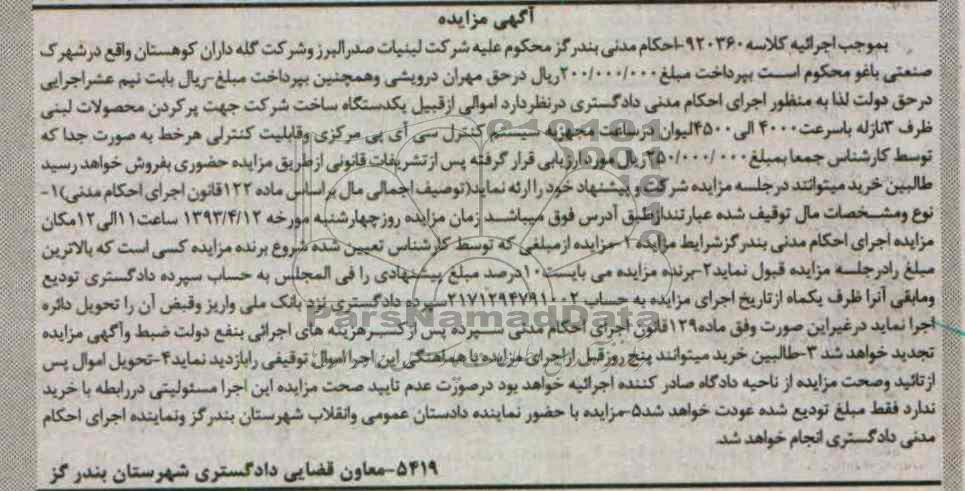 آگهی مزایده
بموجب اجرائیه کلاسه ۹۲۰۳۶۰-احکام مدنی بندرگز محکوم علیه شرکت لبنیات صدرالبرز وشرکت گله داران کوهستان واقع درشهرک
صنعتی باغو محکوم است بپرداخت مبلغ ۲۰۰/۰۰۰/۰۰۰ریال درحق مهران درویشی وهمچنین بپرداخت مبلغ-ریال بابت نیم عشراجرایی
درحق دولت لذا به منظور اجرای احکام مدنی دادگستری درنظردارد اموالی ازقبیل یکدستگاه ساخت شرکت جهت پرکردن محصولات لبنی
ظرف ۳نازله باسرعت ۴۰۰۰ الی ۴۵۰۰لیوان درساعت مجهزبه سیستم کنترل سی آی پی مرکزی وقابلیت کنترلی هرخط به صورت جدا که
توسط کارشناس جمعا بمبلغ ۲۵۰/۰۰۰/۰۰۰ریال مورد ارزیابی قرار گرفته پس ازتشریفات قانونی ازطریق مزایده حضوری بفروش خواهد رسید
طالبین خرید میتوانند درجلسه مزایده شرکت و پیشنهاد خود را ارئه نماید(توصیف اجمالی مال براساس ماده ۱۲۲قانون اجرای احکام مدنی)۱-
نوع ومشخصات مال توقیف شده عبارتنداز:طبق آدرس فوق میباشد زمان مزایده روزچهارشنبه مورخه ۱۳۹۳/۴/۱۲ ساعت۱۱الی۱۲مکان
مزایده اجرای احکام مدنی بندرگزشرایط مزایده ۱-مزایده ازمبلغی که توسط کارشناس تعیین شده شروع برنده مزایده کسی است که بالاترین
مبلغ رادرجلسه مزایده قبول نماید۲-برنده مزایده می بایست۱۰درصد مبلغ پیشنهادی را فی المجلس به حساب سپرده دادگستری تودیع
ومابقی آنرا ظرف یکماه ازتاریخ اجرای مزایده به حساب ۲۱۷۱۲۹۴۷۹۱۰۰۲سپرده دادگستری نزد بانک ملی واریز وقبض آن را تحویل دائره
اجرا نماید درغیراین صورت وفق ماده۱۲۹قانون اجرای احکام مدنی سپرده پس ازکسرهزینه های اجرائی بنفع دولت ضبط وآگهی مزایده
تجدید خواهد شد ۳-طالبین خرید میتوانند پنج روزقبل ازاجرای مزایده با هماهنگی این اجرا اموال توقیفی رابازدید نماید۴-تحویل اموال پس
ازتائید وصحت مزایده از ناحیه دادگاه صادر کننده اجرائیه خواهد بود درصورت عدم تایید صحت مزایده این اجرا مسئولیتی دررابطه با خرید
ندارد فقط مبلغ تودیع شده عودت خواهد شد۵-مزایده با حضور نماینده دادستان عمومی وانقلاب شهرستان بندرگز ونماینده اجرای احکام
مدنی دادگستری انجام خواهد شد.
۵۴۱۹-معاون قضایی دادگستری شهرستان بندر گز
ParsNamadData